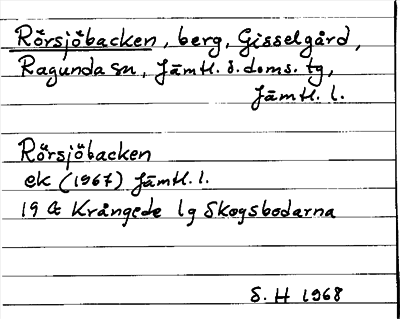 Rörsjöbacken, berg, Gisselgård,
Ragunda sn, Jämtl. ö. doms. tg,
Jämtl. l.
Rörsjöbacken
ek (1967) Jämtl. l.
19 G Krångede lg Skogsbodarna
S. H 1968